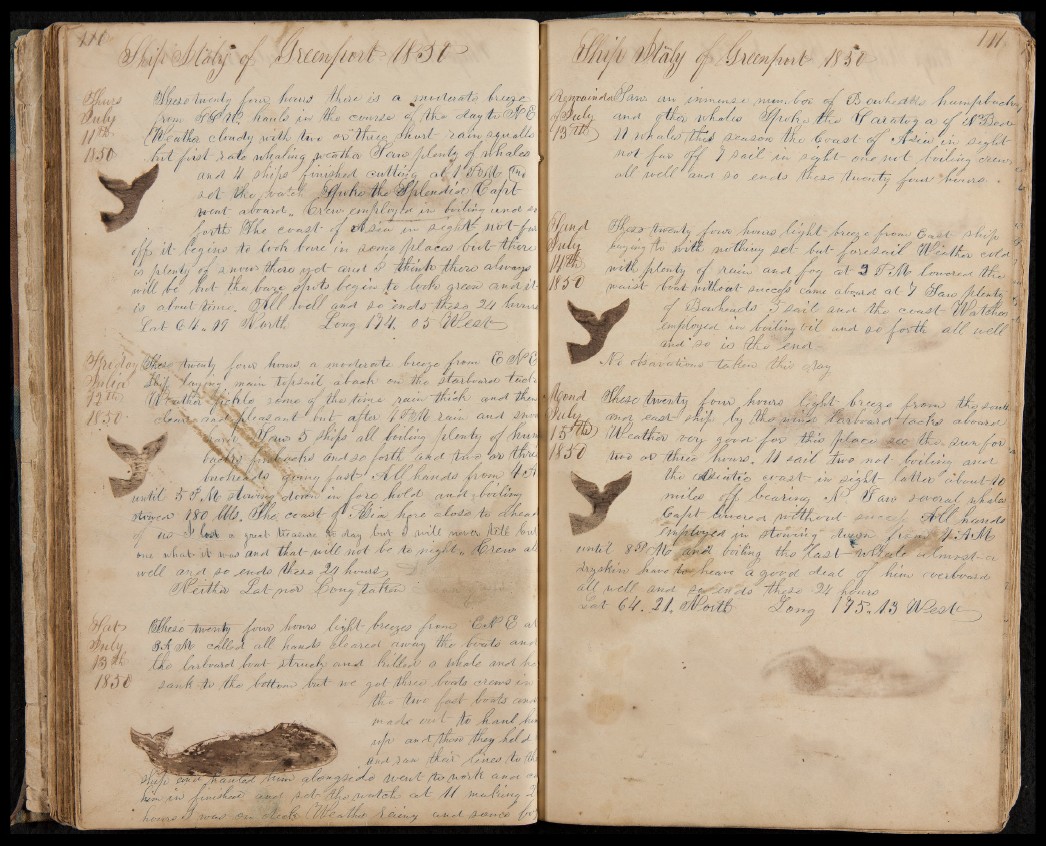 110
Ship Italy of Greenport 1850
Thurs July 11th 1850
These twenty four hours there is a moderate breeze
from hauls in the course of the day to N E
Weather cloudy with two or three short rain squalls
but first rate whaling weather Saw plenty of whales
and 4 ships finished cutting at 1 P M and
set the watch Spoke the Splendid Capt
went aboard Crew employed in boiling and so
forth The coast of Asia in sight not far
off it begins to look bare in some places but there
is plenty of snow there yet and I think there always
will be but the bare spots begin to look green and it
is about time. All well and so ends these 24 hours
Lat 64. 19 North Long 174. 05 West
Friday July 12th 1850
These twenty four hours a moderate breeze from E N E
Ship laying main topsail aback on the starboard tack
Weather some of the time rain thick and then
and pleasant but after 4 P M rain and snow
Saw 5 ships all boiling plenty of hump
backs and so forth and two or three
bowheads going fast All hands from 4 A M
until 5 P M stowing down in fore hold and boiling
stowed 180 bbls. The coast of Asia here close to ahead
of us I lost a great treasure to day but I will never tell but
one what it was and that will not be to night. Crew all
well and so ends these 24 hours
Neither Lat nor Long taken
Sat July 13th 1850
These twenty four hours light breezes from E N E at
3 A M called all hands cleared away the boats and
the larboard boat struck and killed a whale and he
sank to the bottom but we got three boats crews in
the two fast boats and
made out to haul him
up and then they held
and ran their lines to the
ship and hauled him alongside went to work and cut
him in finished and set the watch at 11 making 21
hours I was on deck Weather rainy and same for
111
Ship Italy of Greenport 1850
Remainder of July 13th
Saw an immense number of Bowheads humpbacks
and other whales Spoke the Saratoga of N Bedford
11 whales this season the Coast of Asia in sight
not far off 7 sail in sight one not boiling crew
all well and so ends these twenty four hours.
Sund July 14th 1850
These twenty four hours light breeze from East ship
laying to with nothing set but foresail Weather cold
with plenty of rain and fog at 3 P. M lowered the
waist boat without success came aboard at 7 Saw plenty
of Bowheads 5 sail and the coast Watches
employed in boiling oil and so forth all well
and so is the end
No observations taken this day
Mond July 15th 1850
These twenty four hours light breeze from the south
and east ship by the wind larboard tacks aboard
Weather very good for this place see the sun for
two or three hours. 11 sail two not boiling and
the Asiatic coast in sight latter about 40
miles off bearing N Saw several whales
Capt lowered without success All hands
Employed in stowing down from 4 A M
until 8 P M and boiling the last whale almost a
dryskin have to heave a good deal of him overboard
all well and so ends these 24 hours
Lat 64. 21. North Long 175. 13 West